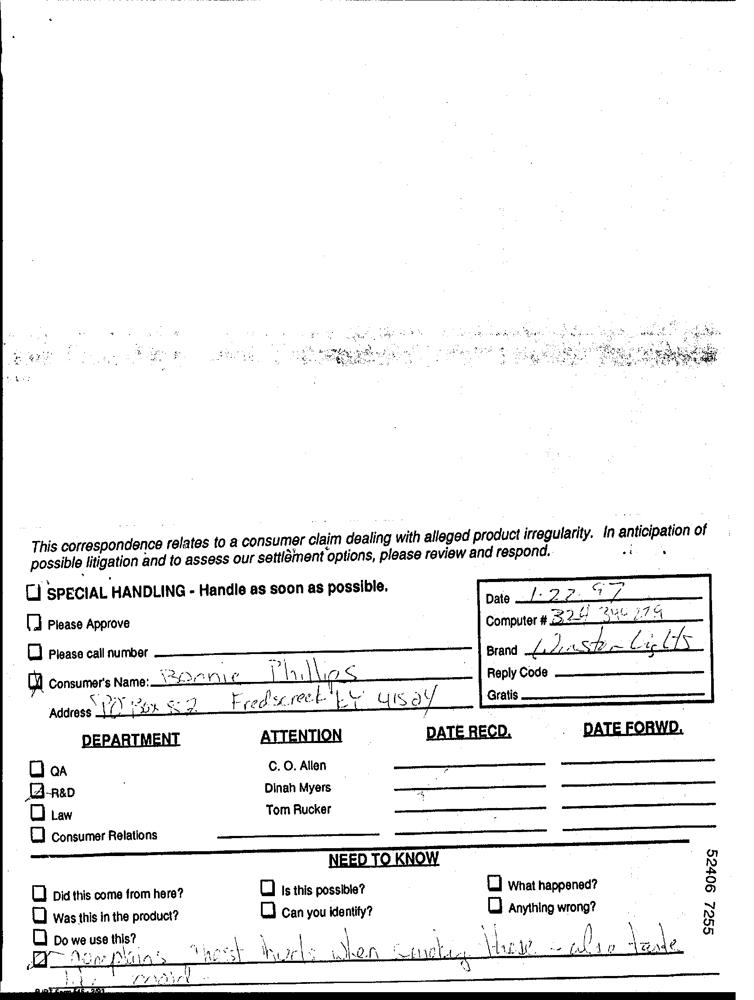 This correspondence relates to a consumer claim dealing with alleged product irregularity. In anticipation of
possible litigation and to assess our settlement options, please review and respond.
SPECIAL HANDLING - Handle as soon as possible.
Please Approve
Please call number
Consumer's Name: Bonnie Phillips
Address PO Box Fredscreek KY
Date 1.22.97
Computer # 324
Brand Winston Lights
Reply Code
Gratis
DEPARTMENT ATTENTION DATE RECD. DATE FORWD.
QA C. O. Allen
R&D Dinah Myers
Law Tom Rucker
Consumer Relations
NEED TO KNOW
Did this come from here? Is this possible? What happened?
Was this in the product? Can you identify? Anything wrong?
Do we use this?
complains chest hurts when smoking these - also taste
52406 7255